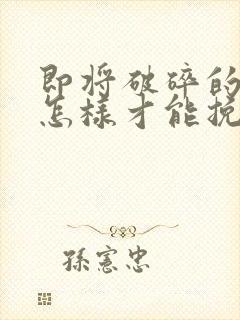 即将破碎的
怎樣才能挽
孫憲忠